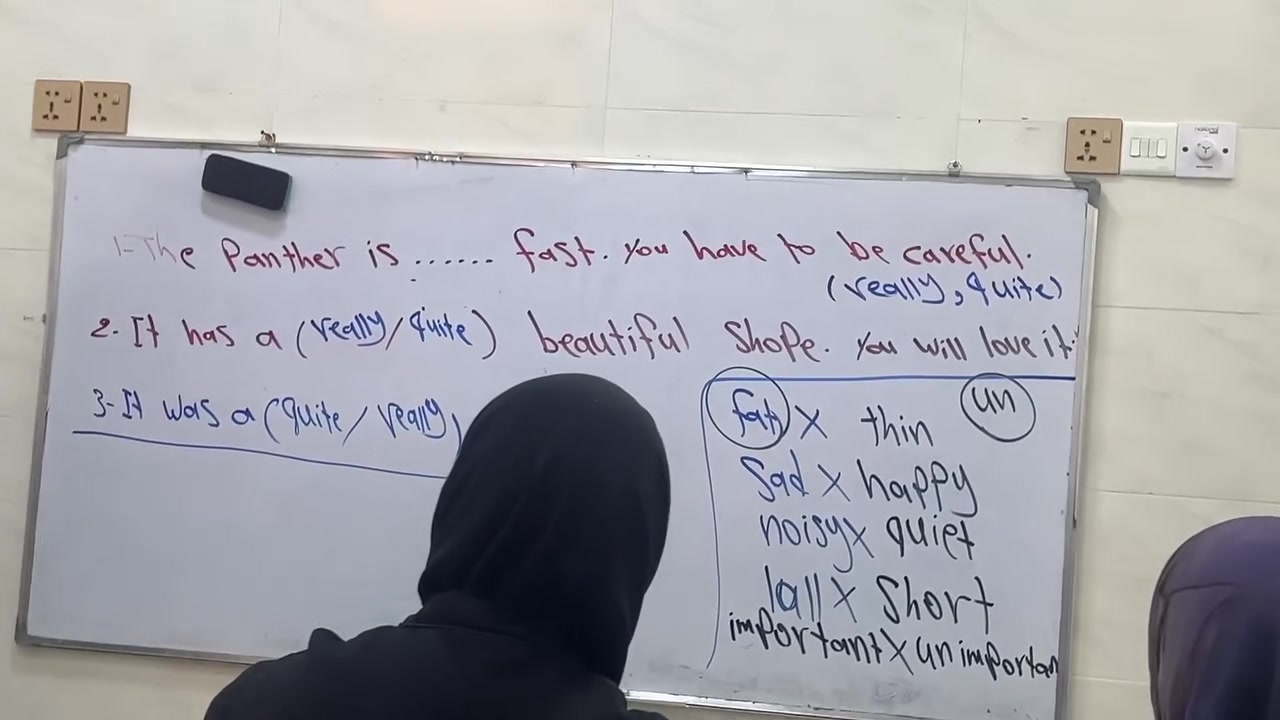 1-The Panther is ...... fast. You have to be careful.
(really, quite)
2. It has a (really/quite) beautiful shope. You will love it.
3-It was a (quite/really,
un
fat X thin
sad X happy
noisy X quiet
tall X short
important X unimportan